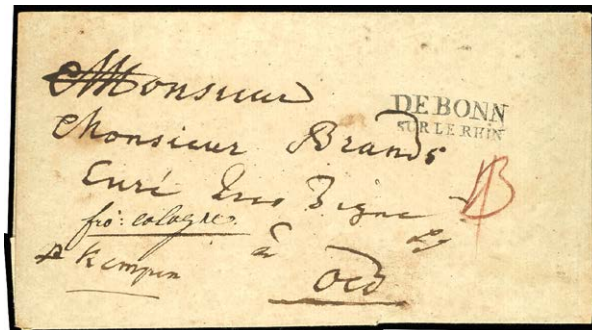 Monsieur
DE BONN
SUR LE RHIN
Monsieur Brands
Curé tres Digne
frō: cologne.
à
p Kempen
Oed